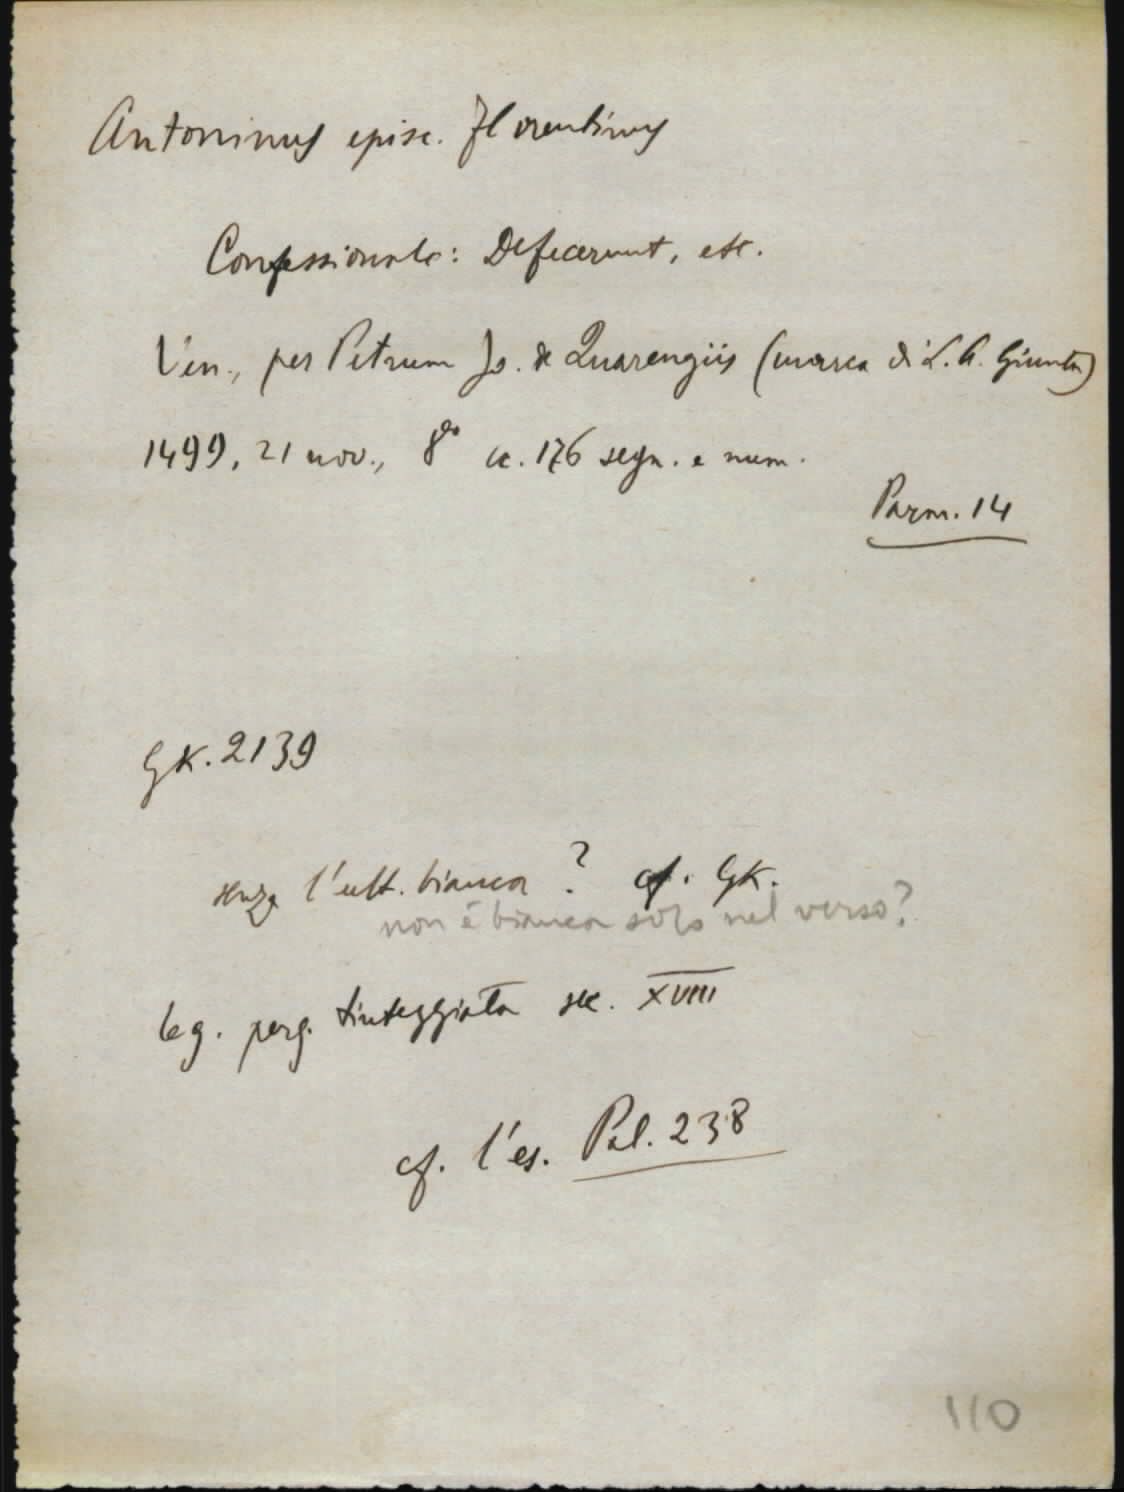 Antoninus episc. Florentinus
Confessionale: Defecerunt, etc.
Ven., per Petrum Jo. de Quarengiis (marca di L. A. Giunta)
1499, 21 nov., 8° cc. 176 segn. e num.
Parm. 14
GK. 2139
senza l'ult. bianca? cf. GK.
non è bianca solo nel verso?
leg. perg. tinteggiata sec. XVIII
cf. l'es. Pal. 238
110